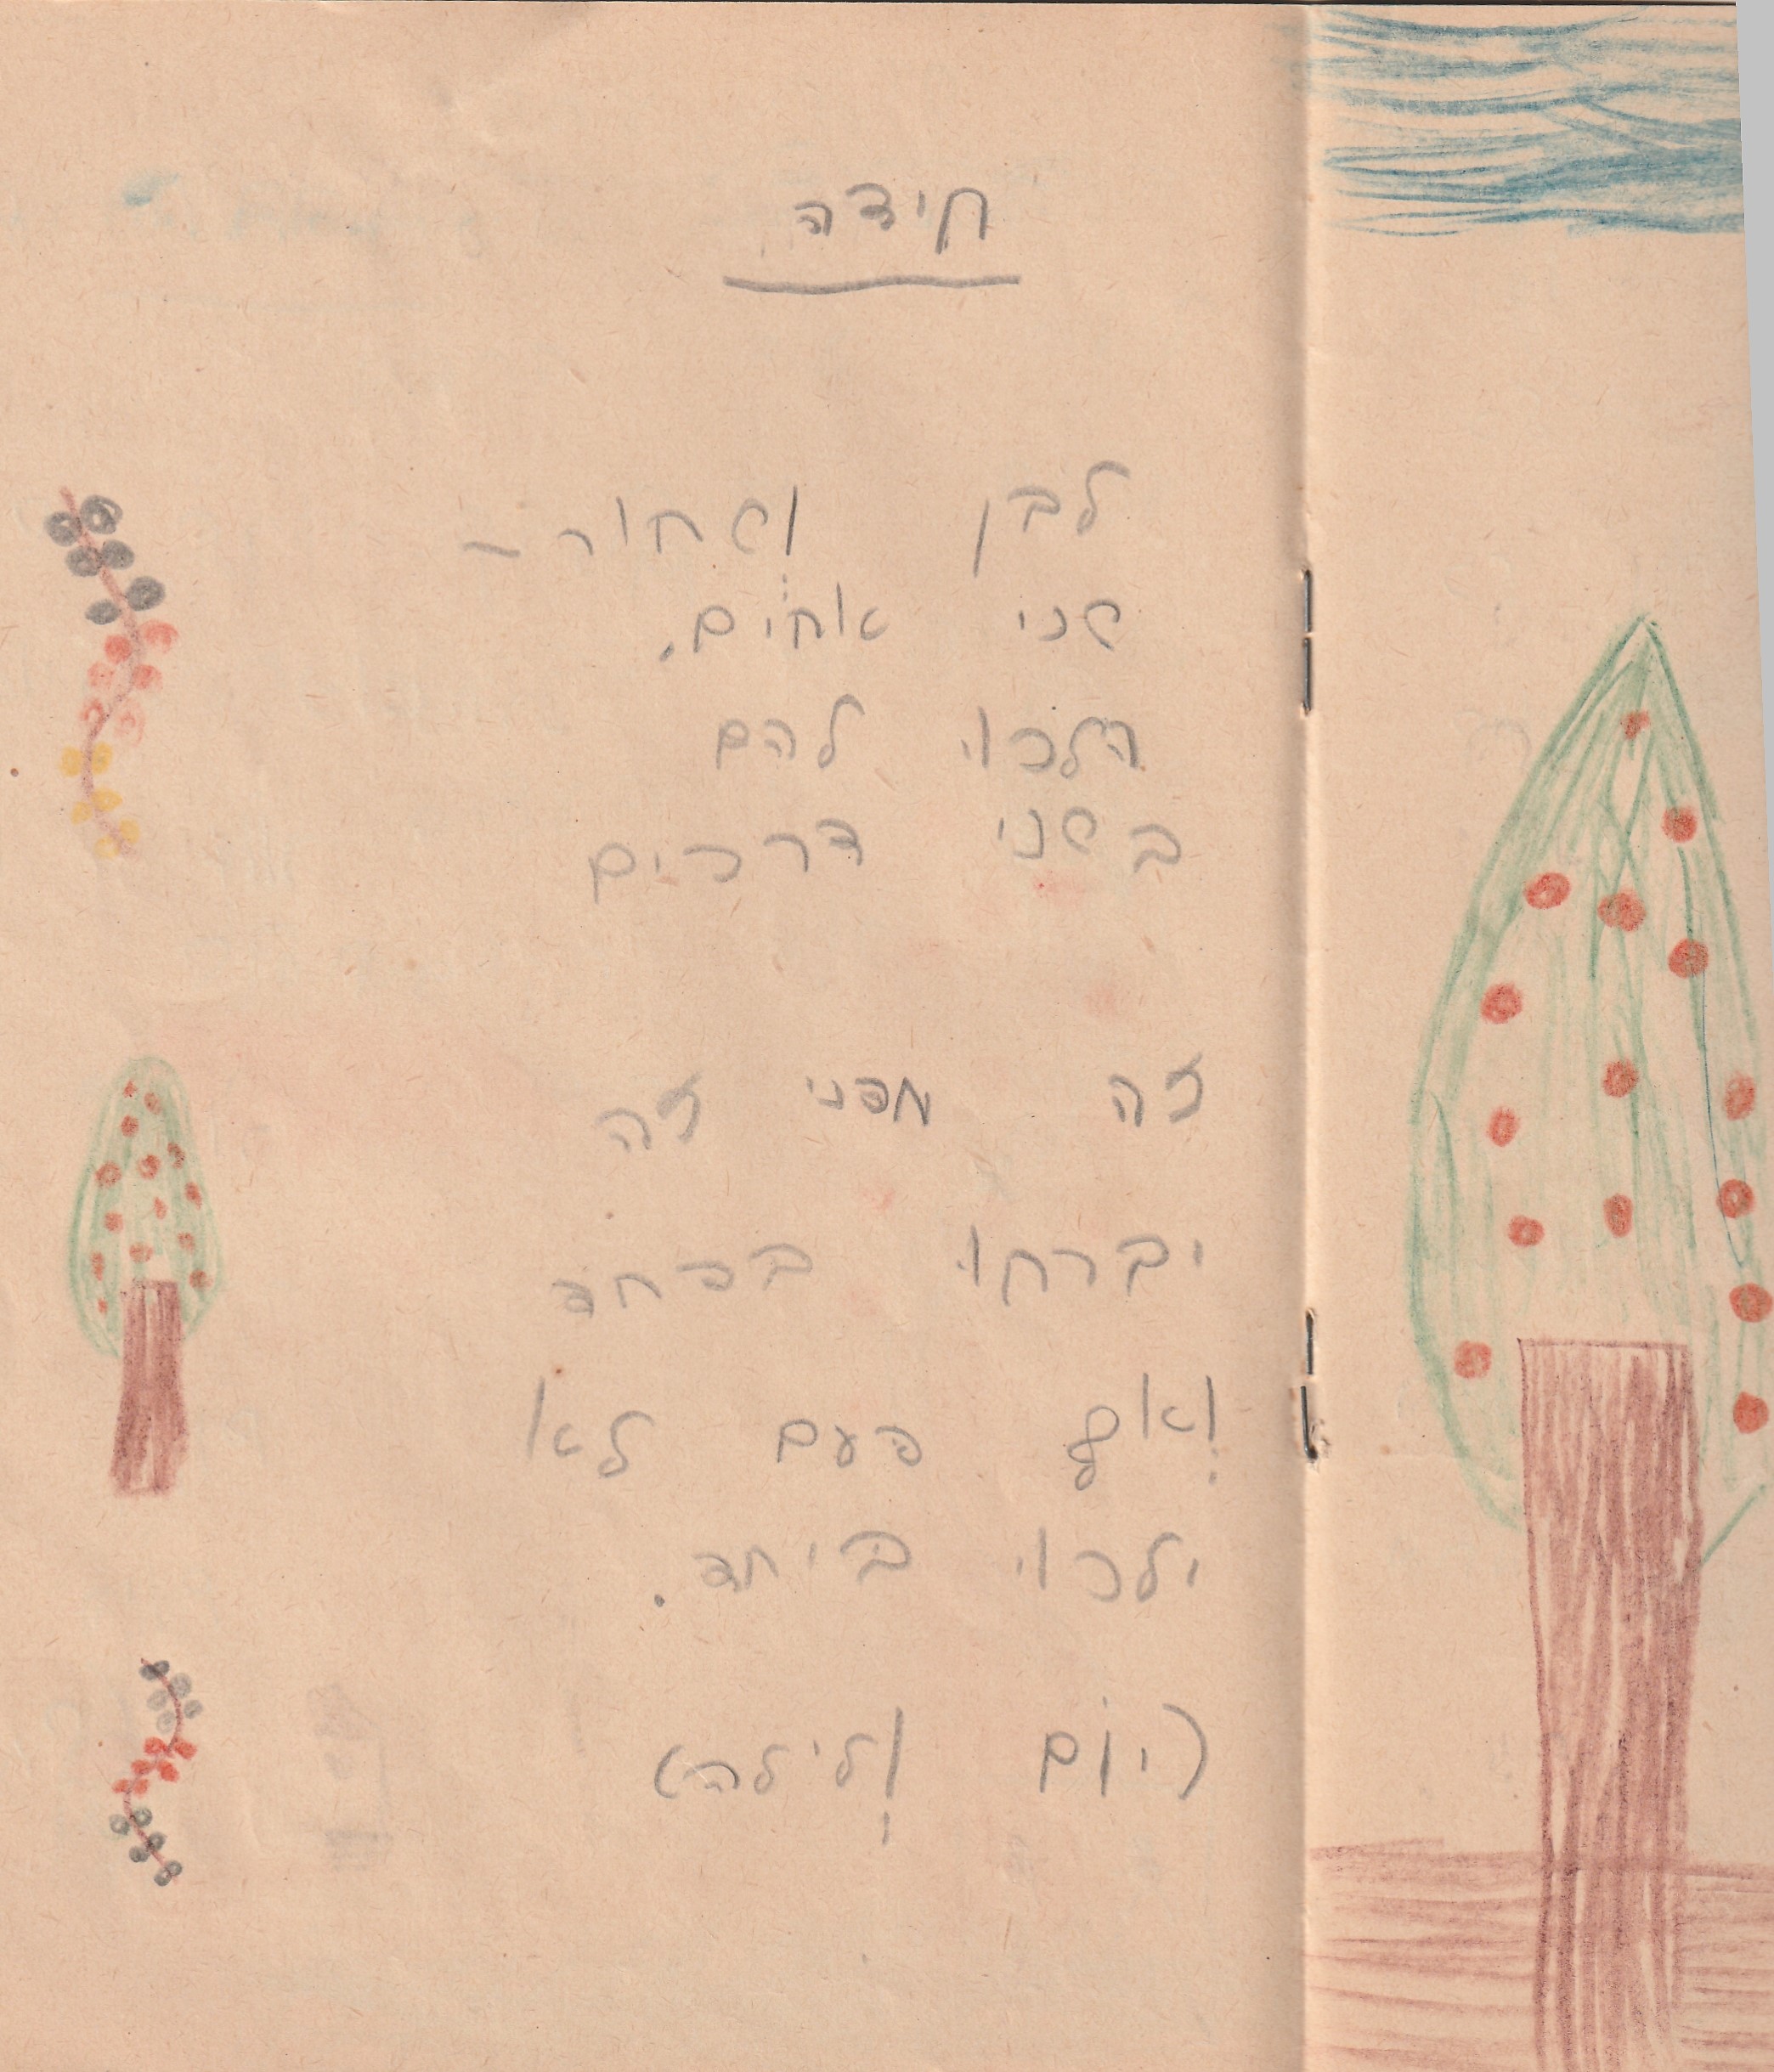 חידה
לבן ושחור –
שני אחים.
הלכו להם
בשני דרכים
זה מפני זה
יברחו בפחד
ואף פעם לא
ילכו ביחד.
(יום ולילה)